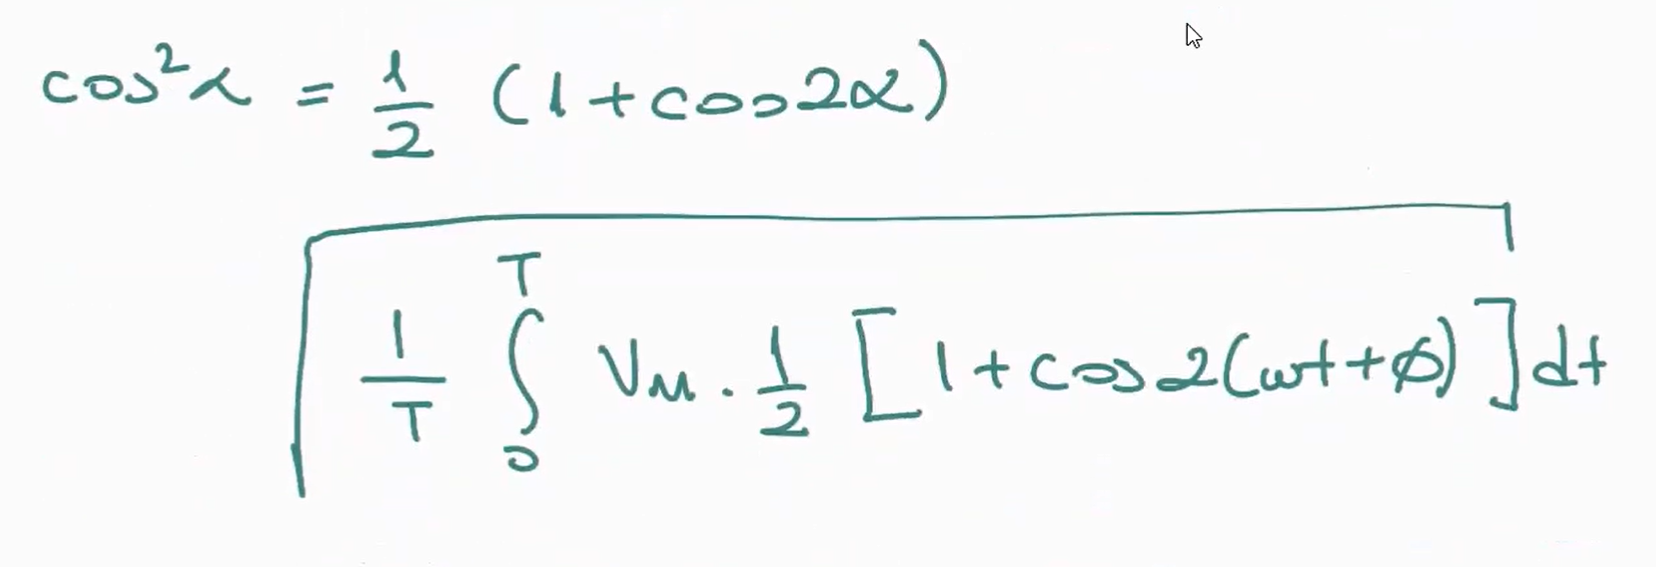 cos²α = 1/2 (1 + cos 2α)
√(1/T ∫₀ᵀ Vm · 1/2 [1 + cos 2(ωt + φ)] dt